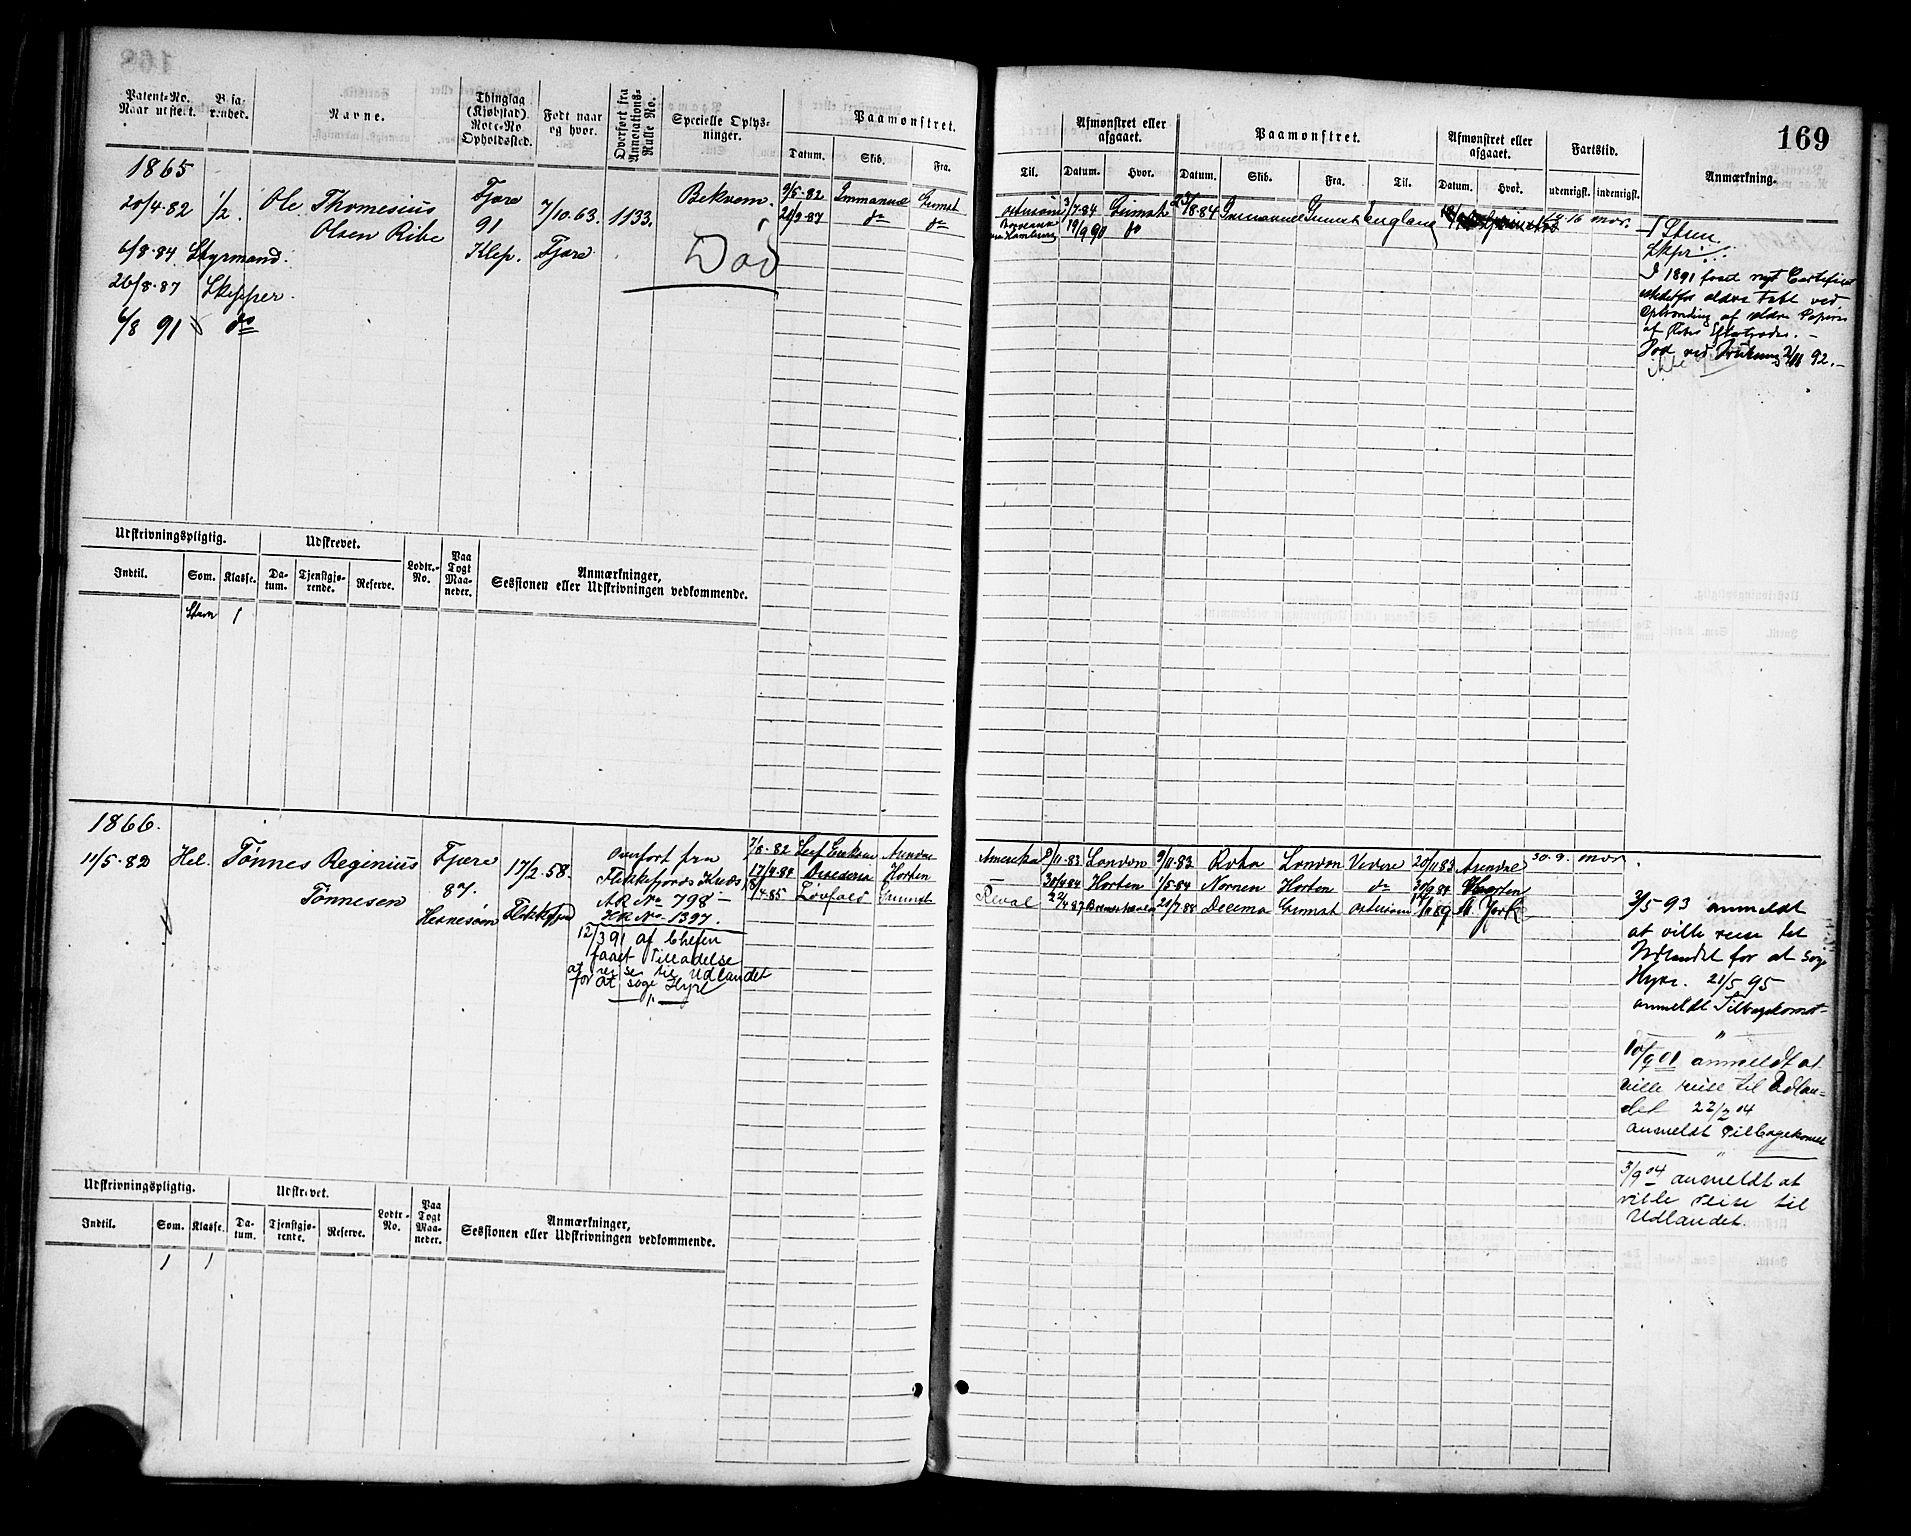 169
Patent-No. Naar utstedt.
Navne.
Thinglag (Kjøbstad). Rote-No Opholdssted.
Født naar og hvor.
Overført fra Annotations-Rulle No.
Specielle Oplysninger.
Paamønstret.
Datum. Skib. Fra. Til.
Afmønstret eller afgaaet.
Datum. Hvor.
Paamønstret.
Datum. Skib. Fra. Til.
Afmønstret eller afgaaet.
Datum. Hvor.
Fartstid.
udenrigst. indenrigst.
Anmærkning.
1865
20/4-82 1/2. Ole Thomesius Fjære 7/10.63. 1133. Bekvem. 9/5-82 Immanuel Grimst
Olsen Ribe 91 do do
6/8-84 Styrmand. Klep. Fjære Død
26/8-87 Skipper.
6/8 91 do
3/7-84 Grimst /8-84 Immanuel Grimst England
19/9 90 do
Skpr
I 1891 faaet nyt Certificat
istedetfor ældre tabt ved
af ældre Papirer
Død ved 92.
Udskrivningspligtig. Udskrevet. Lodtr.-No. Paa Togt Maaneder. Anmærkninger, Sessionen eller Udskrivningen vedkommende.
Indtil. Som. Klasse. Datum. Tjenstgjørende. Reserve.
1
1866.
11/5-82 Hel. Tønnes Reginius Fjære 17/2-58. Overført fra 7/8-82 Leif Erikson Arendal
Tønnesen 87. Flekkefjords Kreds 17/4-84 Horten
Flekkefjord A.R. No 798 /4-85 Grimst
H.R. No 1397.
12/3 91 af Chefen
faaet Tilladelse
at reise til Udlandet
for at søge Hyre
Amerika 9/11-83 London 9/11-83 Rota London Videre 20/11 83 Arendal 30.9. mdr.
30/4 84 Horten 1/5-84 Nornen Horten do 30/9 84 Horten
Reval 20/7-88 Decema Grimst N. York
3/5 93 anmeldt
at ville reise til
Udlandet for at søge
Hyre. 21/5 95
anmeldt Tilbagekomst
"
10/9 01 anmeldt at
ville reise til Udlan-
det 22/2 04
anmeldt Tilbagekomst
"
3/9 04 anmeldt at
ville reise til
Udlandet.
Udskrivningspligtig. Udskrevet. Lodtr.-No. Paa Togt Maaneder. Anmærkninger, Sessionen eller Udskrivningen vedkommende.
Indtil. Som. Klasse. Datum. Tjenstgjørende. Reserve.
1 1